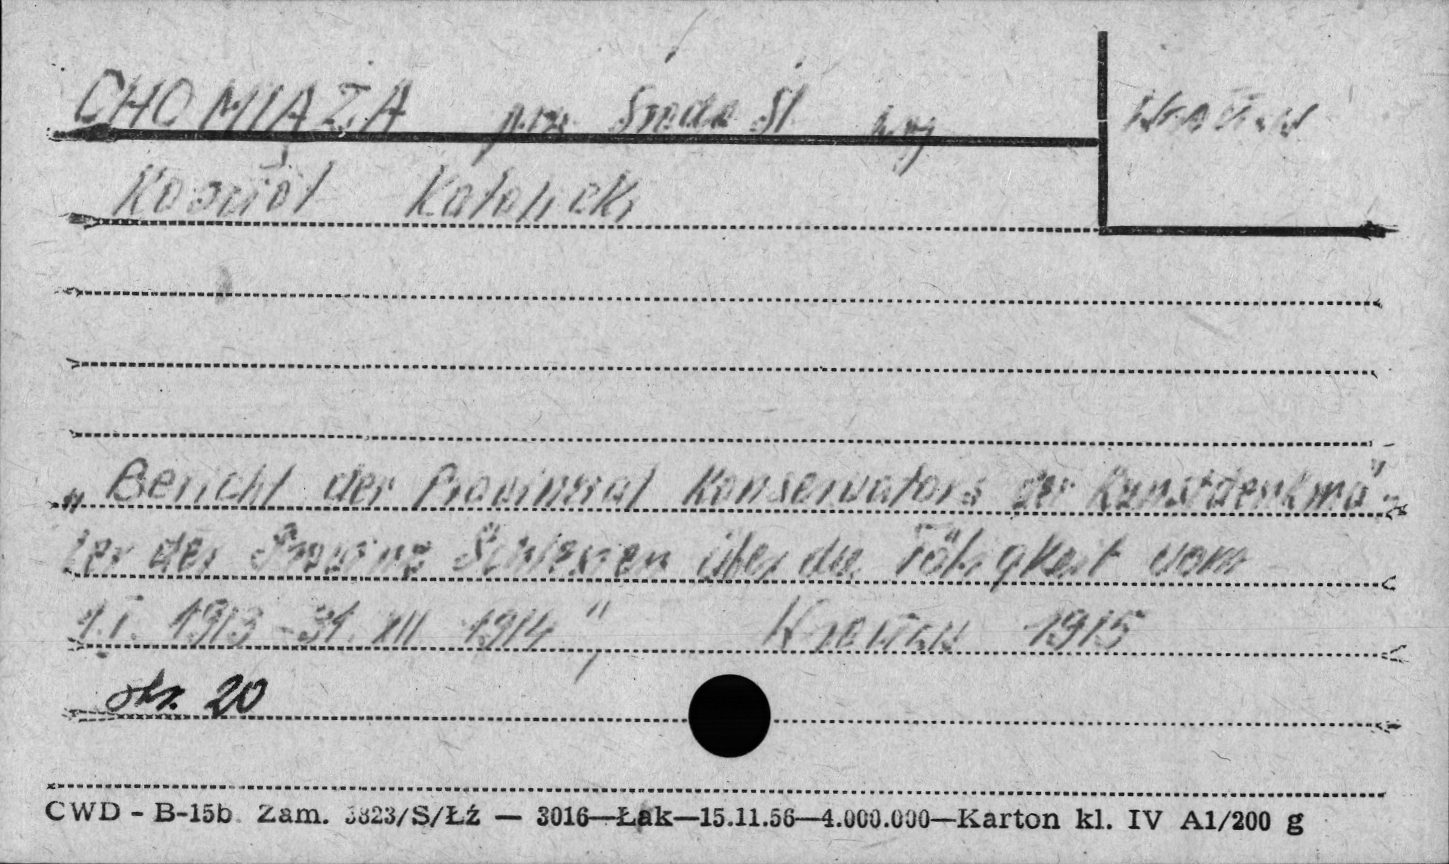 CHOMIĄŻA pow. Środa Śl woj Wrocław
Kościół Katolicki
„Bericht der Provinzial Konservators der Kunstdenkmä-
ler der Provinz Schlesien über die Tätigkeit vom
1.I. 1913 - 31 XII 1914", Wrocław 1915
str. 20
CWD - B-15b Zam. 3823/S/Łź — 3016—Łak—15.11.56—4.000.000—Karton kl. IV A1/200 g